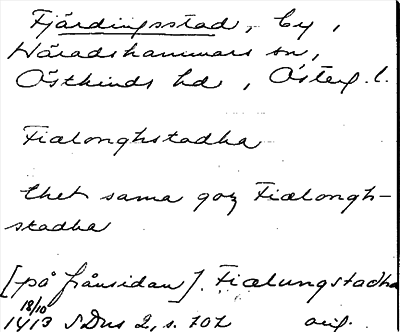 Fjärdingsstad, by,
Häradshammars sn,
Östkinds hd, Österg. l.
Fiælonghstadha
thet sama goz Fiælongh-
stadha
[på frånsidan]. Fiælungstadha
18/10
1413 SDns 2, s. 707 orig.